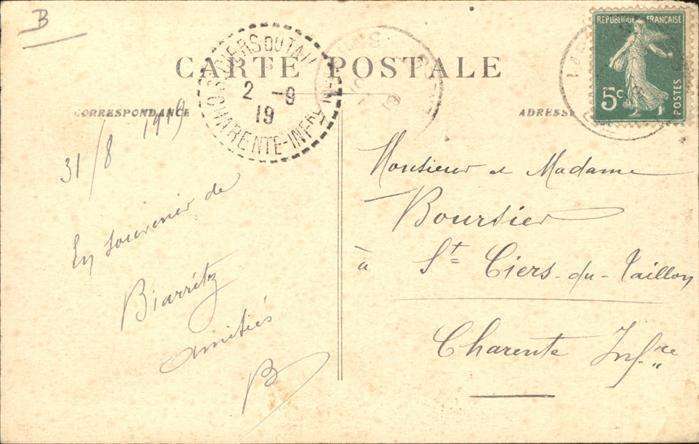 B
CARTE POSTALE
CORRESPONDANCE
ADRESSE
2 - 9
19
CHARENTE-INFRE
REPUBLIQUE FRANÇAISE
5c
POSTES
31/8 1919
En souvenir de
Biarritz
amitiés
B
Monsieur et Madame
Boursier
à St Ciers-du-Taillon
Charente Infre